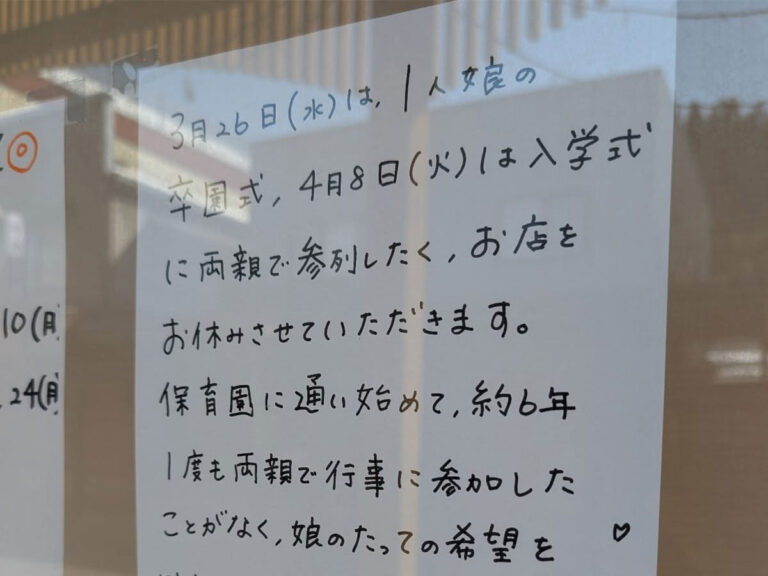 3月26日(水)は、1人娘の
卒園式、4月8日(火)は入学式
に両親で参列したく、お店を
お休みさせていただきます。
保育園に通い始めて、約6年
1度も両親で行事に参加した
ことがなく、娘のたっての希望を ♡
10(月)
24(月)